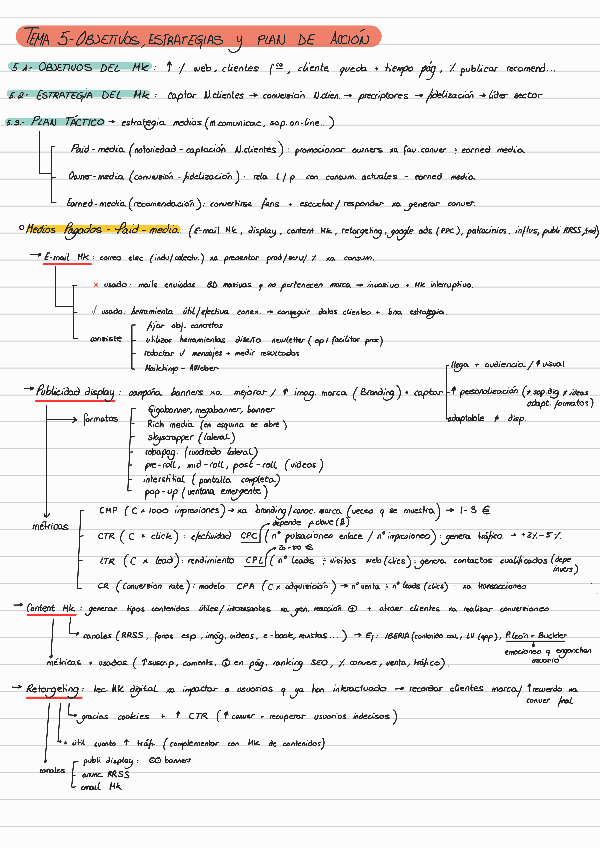 TEMA 5- OBJETIVOS, ESTRATEGIAS y PLAN DE ACCIÓN
5.1- OBJETIVOS DEL MK: ↑ % web, clientes fco, cliente queda + tiempo pág, % publicar recomend...
5.2- ESTRATEGIA DEL MK: captar N.clientes → conversión N.clien. → precriptores → fidelización → líder sector
5.3- PLAN TÁCTICO → estrategia medios (m.comunicac, sop. on-line...)
Paid-media (notoriedad-captación N.clientes): promocionar owners xa fav.conver + earned media.
Owner-media (conversión-fidelización): rela l/p con consum. actuales - earned media.
Earned-media (recomendación): convertirse fans + escuchar/responder xa generar conver.
Medios Pagados - Paid-media. (E-mail Mk, display, content Mk, retargeting, google ads (PPC), patrocinios, influs, publi RRSS,
→ E-mail Mk: correo elec. (indv/colectv.) xa presentar prod/serv/ % xa consum.
x usado: mails enviados BD masivas q no pertenecen marca → invasivo + Mk interruptivo.
√ usado: herramienta útil/efectiva conex. → conseguir datos clientes + bna estrategia.
consiste
fijar obj. concretos
utilizar herramientas diseño newletter (apl facilitar proc)
redactar √ mensajes + medir resultados
Mailchimp - AWeber
→ Publicidad display: campaña banners xa mejorar / ↑ imag. marca (Branding) + captar
llega + audiencia / ↑ visual
↑ personalización (+ sop.dig ≠ ideas
adapt. formatos)
adaptable ≠ disp.
formatos
Gigabanner, megabanner, banner
Rich media (en esquina se abre)
skyscrapper (lateral)
robapag. (cuadrado lateral)
pre-roll, mid-roll, post-roll (videos)
interstitial (pantalla completa)
pop-up (ventana emergente)
métricas
CMP (C x 1000 impresiones) → xa branding/conoc. marca (veces q se muestra) → 1-3 €
depende p.clave (B)
CTR (C x click): efectividad CPC (nº pulsaciones enlace / nº impresiones): genera tráfico → +2%-5%
20-50 €
LTR (C x lead): rendimiento CPL (nº leads ÷ visitas web (clics): genera contactos cualificados (depe
invers)
CR (Conversion rate): modelo CPA (C x adquisición) → nº venta ÷ nº leads (clics) xa transacciones
→ Content Mk: generar tipos contenidos útiles/interesantes xa gen. reacción ⊕ + atraer clientes xa realizar conversiones
canales (RRSS, foros esp, imág, videos, e-book, revistas...) → Ej: IBERIA (contenido cal, LV (app), P.León - Buckler
emociones q enganchan
usuario
métricas + usados (↑ suscrip, coments. ⊕ en pág. ranking SEO, % convers, venta, tráfico).
→ Retargeting: tec. Mk digital xa impactar a usuarios q ya han interactuado → recordar clientes marca / ↑ recuerdo xa
conver final
gracias cookies + ↑ CTR (↑ conver - recuperar usuarios indecisos)
+ útil cuanto ↑ tráf. (complementar con Mk de contenidos)
canales
publi display: banner
anunc RRSS
email Mk